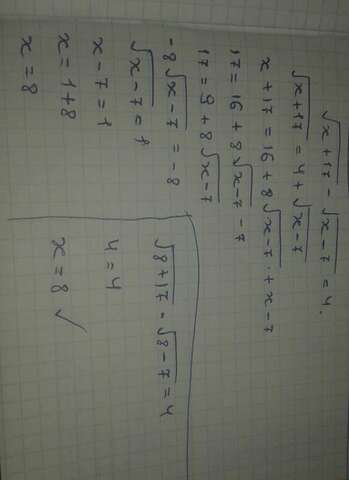 √x+17 - √x-7 = 4.
√x+17 = 4 + √x-7
x + 17 = 16 + 8√x-7 + x - 7
17 = 16 + 8√x-7 - 7
17 = 9 + 8√x-7
-8√x-7 = -8
√x-7 = 1
x - 7 = 1
x = 1+8
x = 8
√8+17 - √8-7 = 4
4 = 4
x = 8 ✓